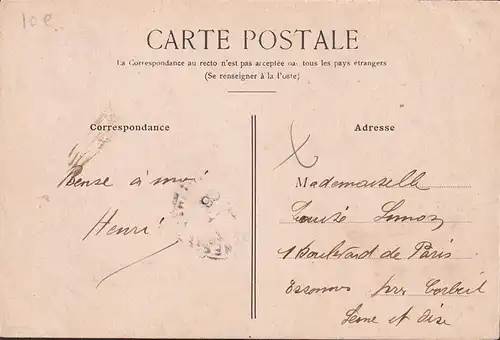 10e
CARTE POSTALE
La Correspondance au recto n'est pas acceptée par tous les pays étrangers
(Se renseigner à la Poste)
Correspondance
Pense à moi
Henri
Adresse
Mademoiselle
1 Boulevard de Paris
Essonnes par Corbeil
Seine et Oise